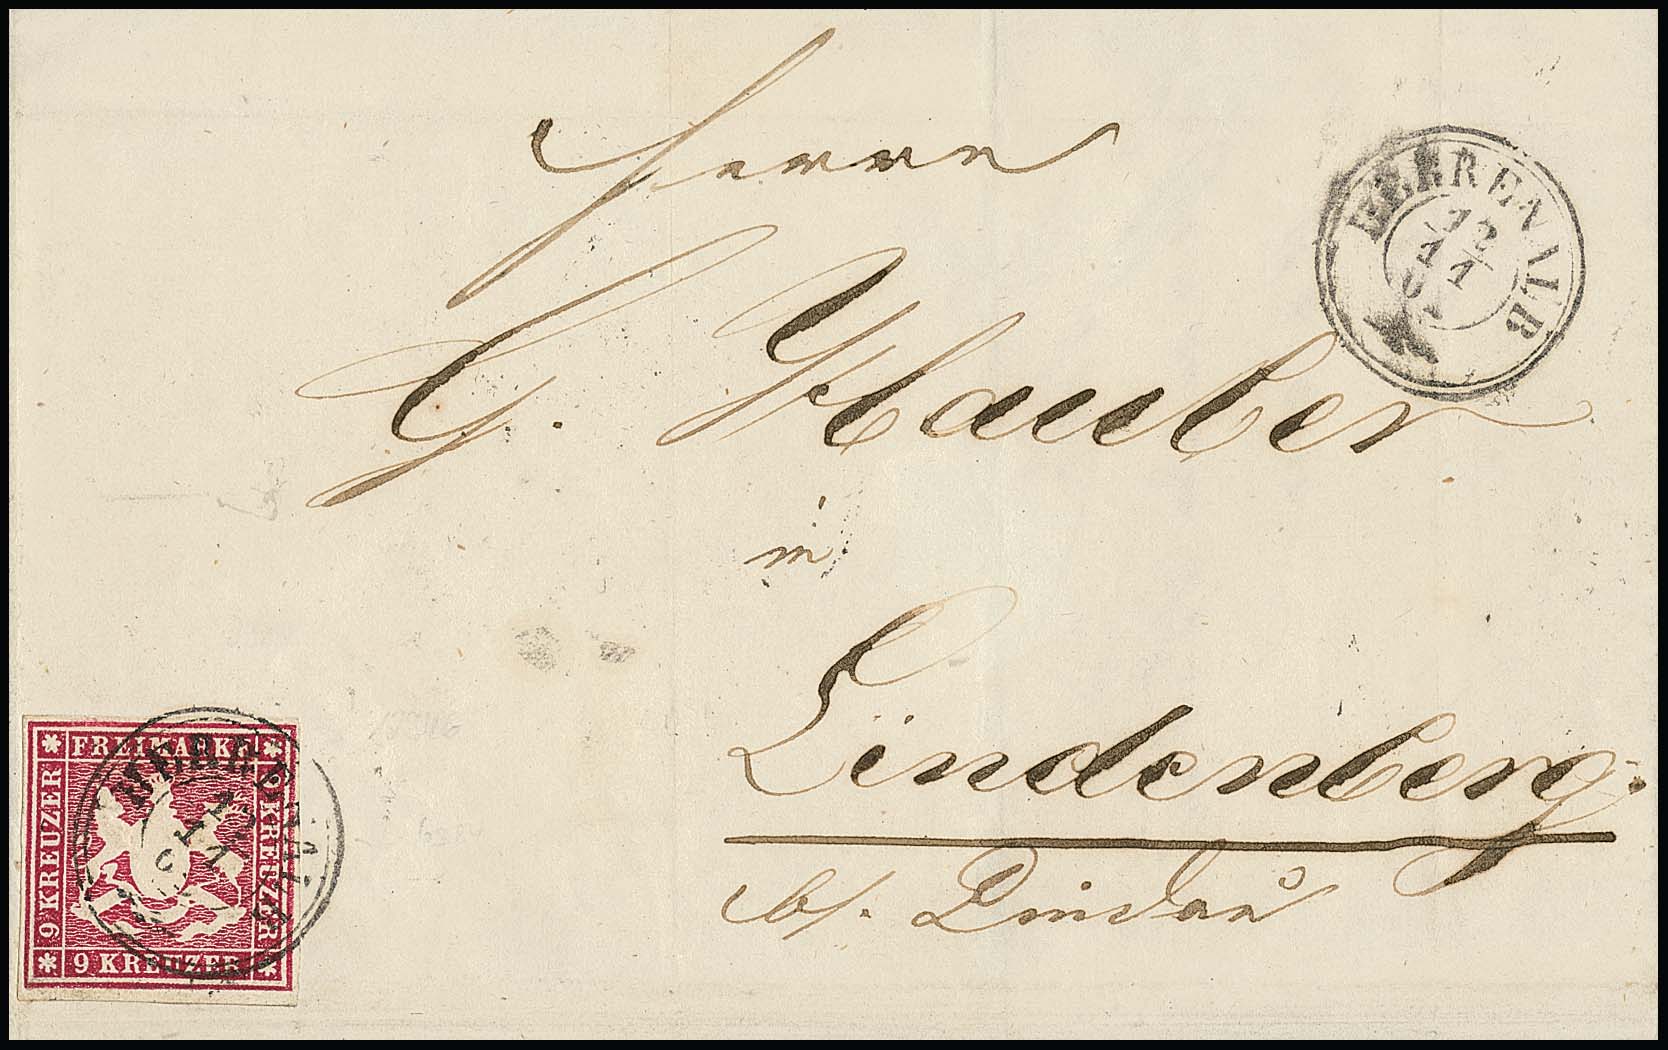 Herrn
G. Hauber
in
Lindenberg.
b/. Lindau
HERRENALB
12
11
FREIMARKE
9 KREUZER
9 KREUZER
9 KREUZER
HERRENALB
12
11